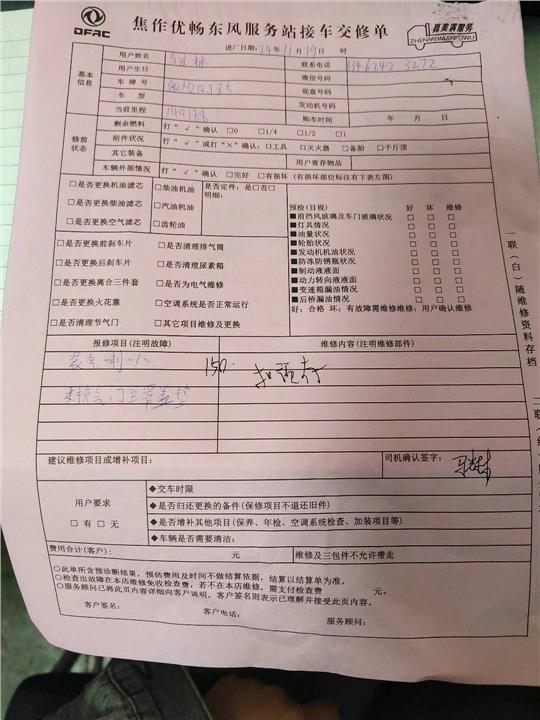 DFAC
焦作优畅东风服务站接车交修单
真美满服务
ZHENMEIMANFUWU
进厂日期:24年11月19日 时
基本信息
用户姓名
联系电话
用户生日
微信号码
车 牌 号
底盘号码
车 型
发动机号码
当前里程
购车时间 年 月 日
修前状况
剩余燃油 打“√”确认 □0 □1/4 □1/2 □1
附件状况 打“√”或打“×”确认:□工具 □灭火器 □备胎 □千斤顶
其它装备 用户寄存物品
车辆外部情况 打“√”确认 □完好 □有损坏 (有损坏部位标注有下表左图)
□是否更换机油滤芯 □柴油机油 是否定件:是□否□
明细:
□是否更换柴油滤芯 □汽油机油
□是否更换空气滤芯 □齿轮油
□是否更换前刹车片 □是否清理排气筒
□是否更换后刹车片 □是否清理尿素箱
□是否更换离合三件套 □是否为电气维修
□是否更换火花塞 □空调系统是否正常运行
□是否清理节气门 □其它项目维修及更换
预检(目视) 好 坏 维修
■前挡风玻璃及车门玻璃状况 □ □ □
■灯具情况 □ □ □
■油量状况 □ □ □
■轮胎状况 □ □ □
■发动机机油状况 □ □ □
■防冻防锈瓶状况 □ □ □
■制动液液面 □ □ □
■动力转向液液面 □ □ □
■变速箱漏油情况 □ □ □
■后桥漏油情况 □ □ □
好:合格 坏:有故障需维修维修:用户确认维修
报修项目(注明故障) 维修内容(注明维修部件)
装气喇叭 150.
气门室罩盖垫
建议维修项目或增补项目: 司机确认签字:
用户要求
□有 □无
◆交车时限
◆是否归还更换的备件(保修项目不退还旧件)
◆是否增补其他项目(保养、年检、空调系统检查、加装项目等)
◆车辆是否需要清洁:
费用合计(客户): 元 维修及三包件不允许带走
○此单所含预诊断结果,预估费用及时间不做结算依据,结算以结算单为准。
○检查出故障在本店维修免收检查费,若不在本店维修,需支付检查费 元。
○服务顾问已将此页内容详细向客户说明,客户签名则表示已理解并接受此页内容。
客户签名: 客户电话: 服务顾问:
一联(白)随维修资料存档